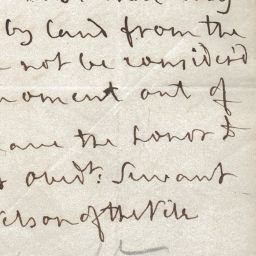 by land from the
not be consider'd
moment out of
have the honor to
obedt: Servant
Nelson of the Nile